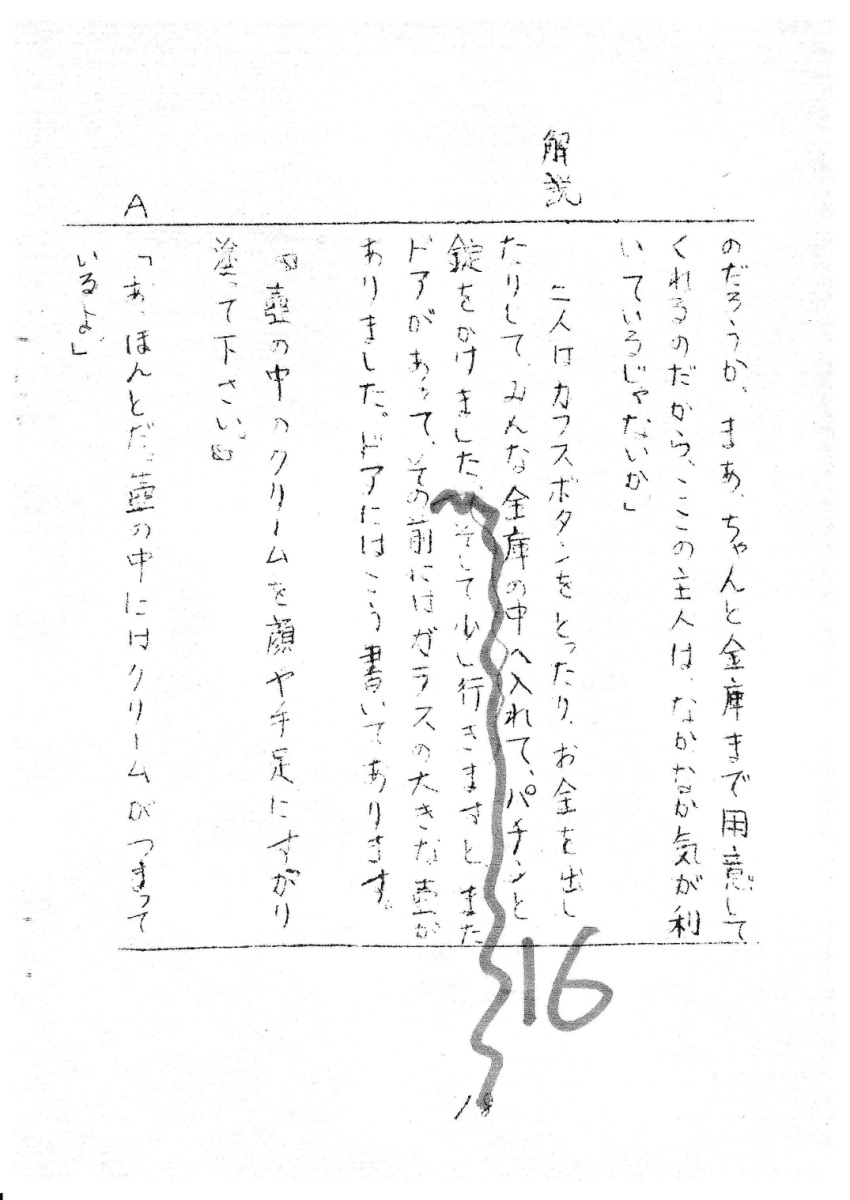 のだろうか、まあ、ちゃんと金庫まで用意して
くれるのだから、ここの主人は、なかなか気が利
いているじゃないか」
解説
二人はカフスボタンをとったり、お金を出し
たりして、みんな金庫の中へ入れて、パチンと
錠をかけました。そして少し行きますと、また
ドアがあって、その前にはガラスの大きな壺が
ありました。ドアにはこう書いてあります。
『壺の中のクリームを顔や手足にすがり
塗って下さい。』
A
「あ、ほんとだ。壺の中にはクリームがつまって
いるよ」
16
18